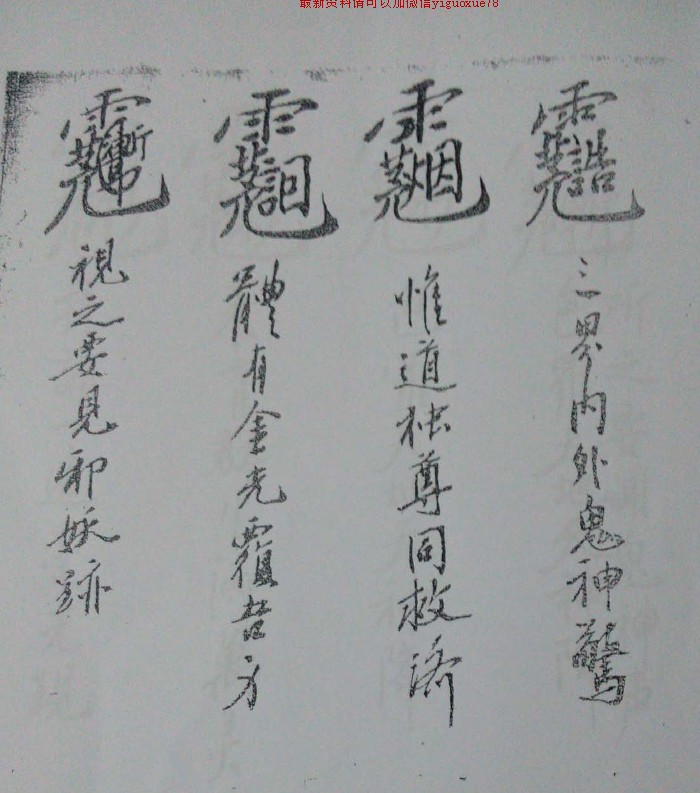 最新资料请可以加微信yiguoxue78
三界内外鬼神驚
惟道独尊同救济
體有金光覆吾身
視之要見邪妖跡